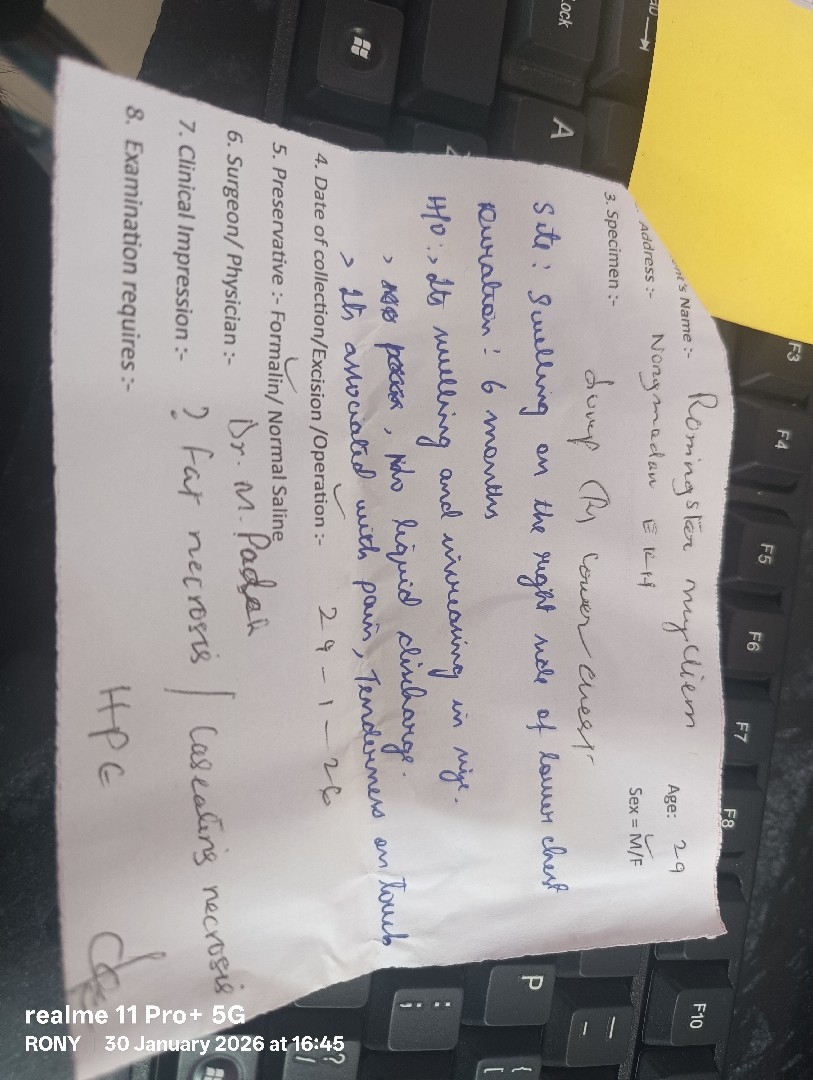 nt's Name :- Romingster mylliem Age: 29
Address :- Nongmadan E KH Sex = M/F
3. Specimen :- Lump (R) lower chest.
Site : Swelling on the right side of lower chest
Duration : 6 months
H/O :> Its swelling and increasing in size.
> No liquid discharge.
> Its associated with pain, Tenderness on touch
4. Date of collection/Excision /Operation :- 29-1-26
5. Preservative :- Formalin/ Normal Saline
6. Surgeon/ Physician :- Dr. M.
7. Clinical Impression :- ? Fat necrosis / Caseating necrosis
8. Examination requires :- HPE
Lock
A
P
F3
F4
F5
F6
F7
F8
F10
realme 11 Pro+ 5G
RONY 30 January 2026 at 16:45